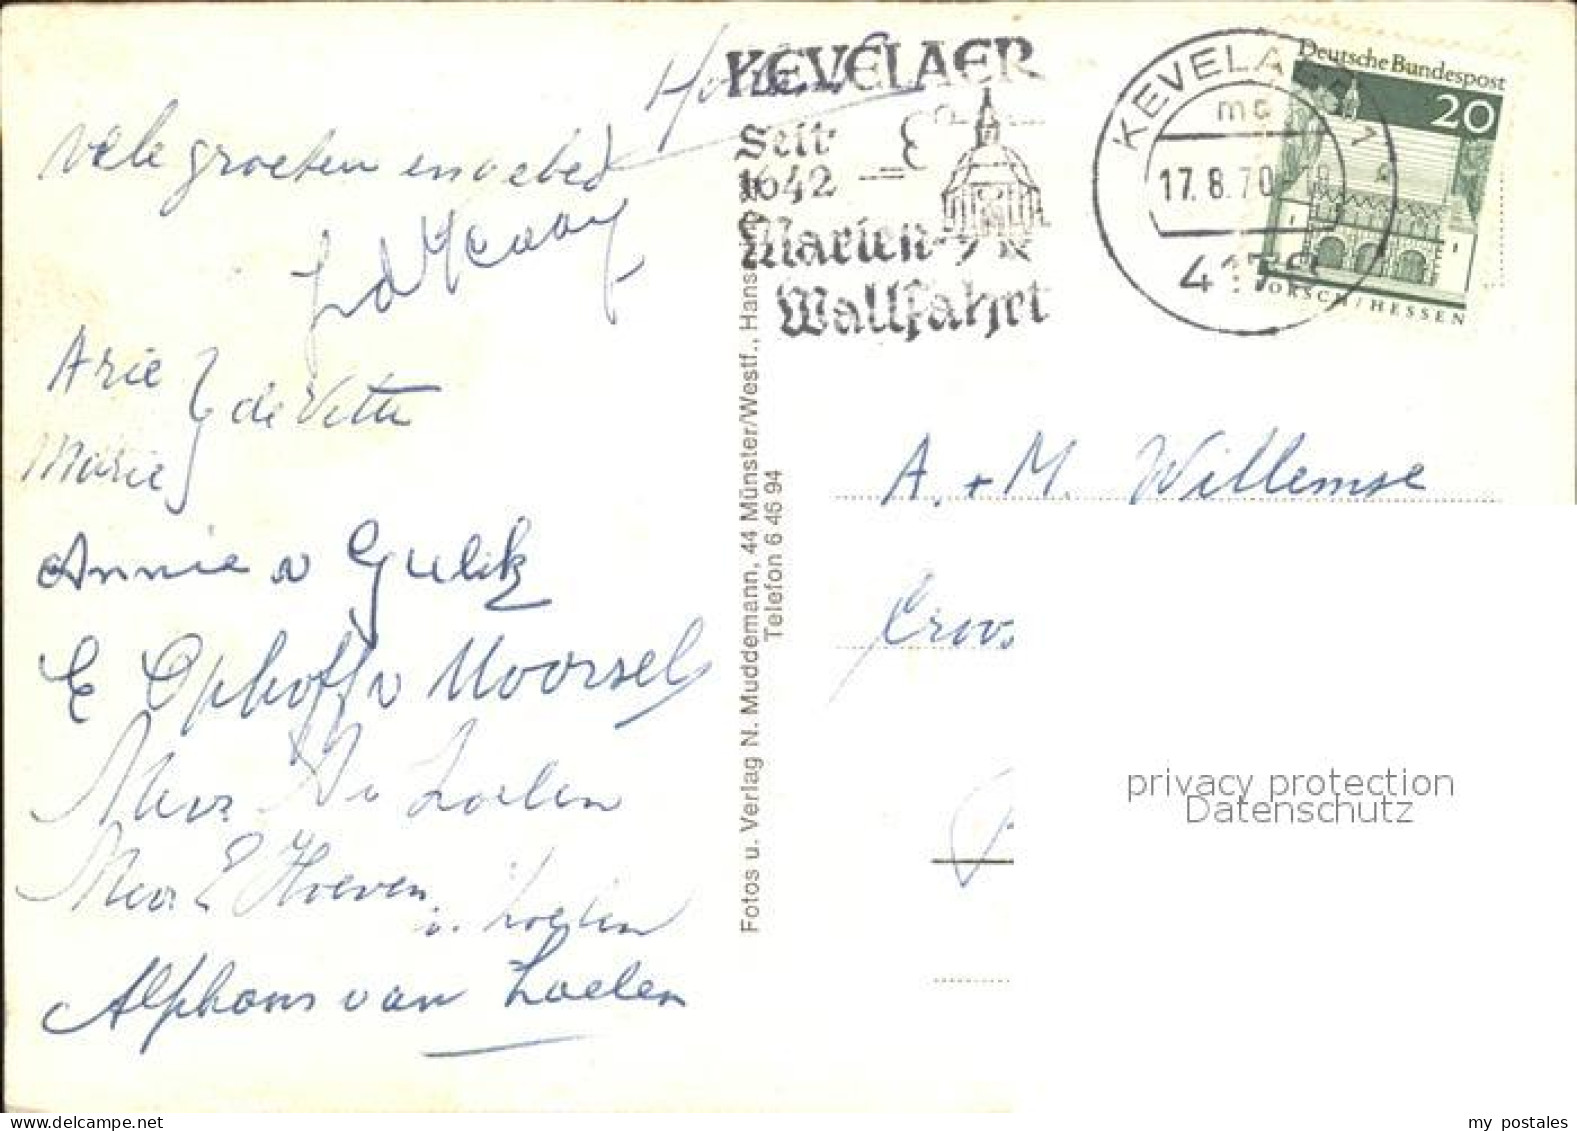 vele groeten en gebed
Arie
Marie
de Vette
Annie v Gulik
E Ophoff v Moorsel
Mevr. v. Loelen
Mevr E Hoeven
v. Loelen
Alphons van Loelen
Fotos u. Verlag N. Muddemann, 44 Münster/Westf., Hans
Telefon 6 46 94
KEVELAER
Seit
1642
Marien-
Wallfahrt
KEVELAER 1
mc
17.8.70
417
Deutsche Bundespost
20
LORSCH/HESSEN
A. + M. Willemse
privacy protection
Datenschutz
my postales
www.delcampe.net